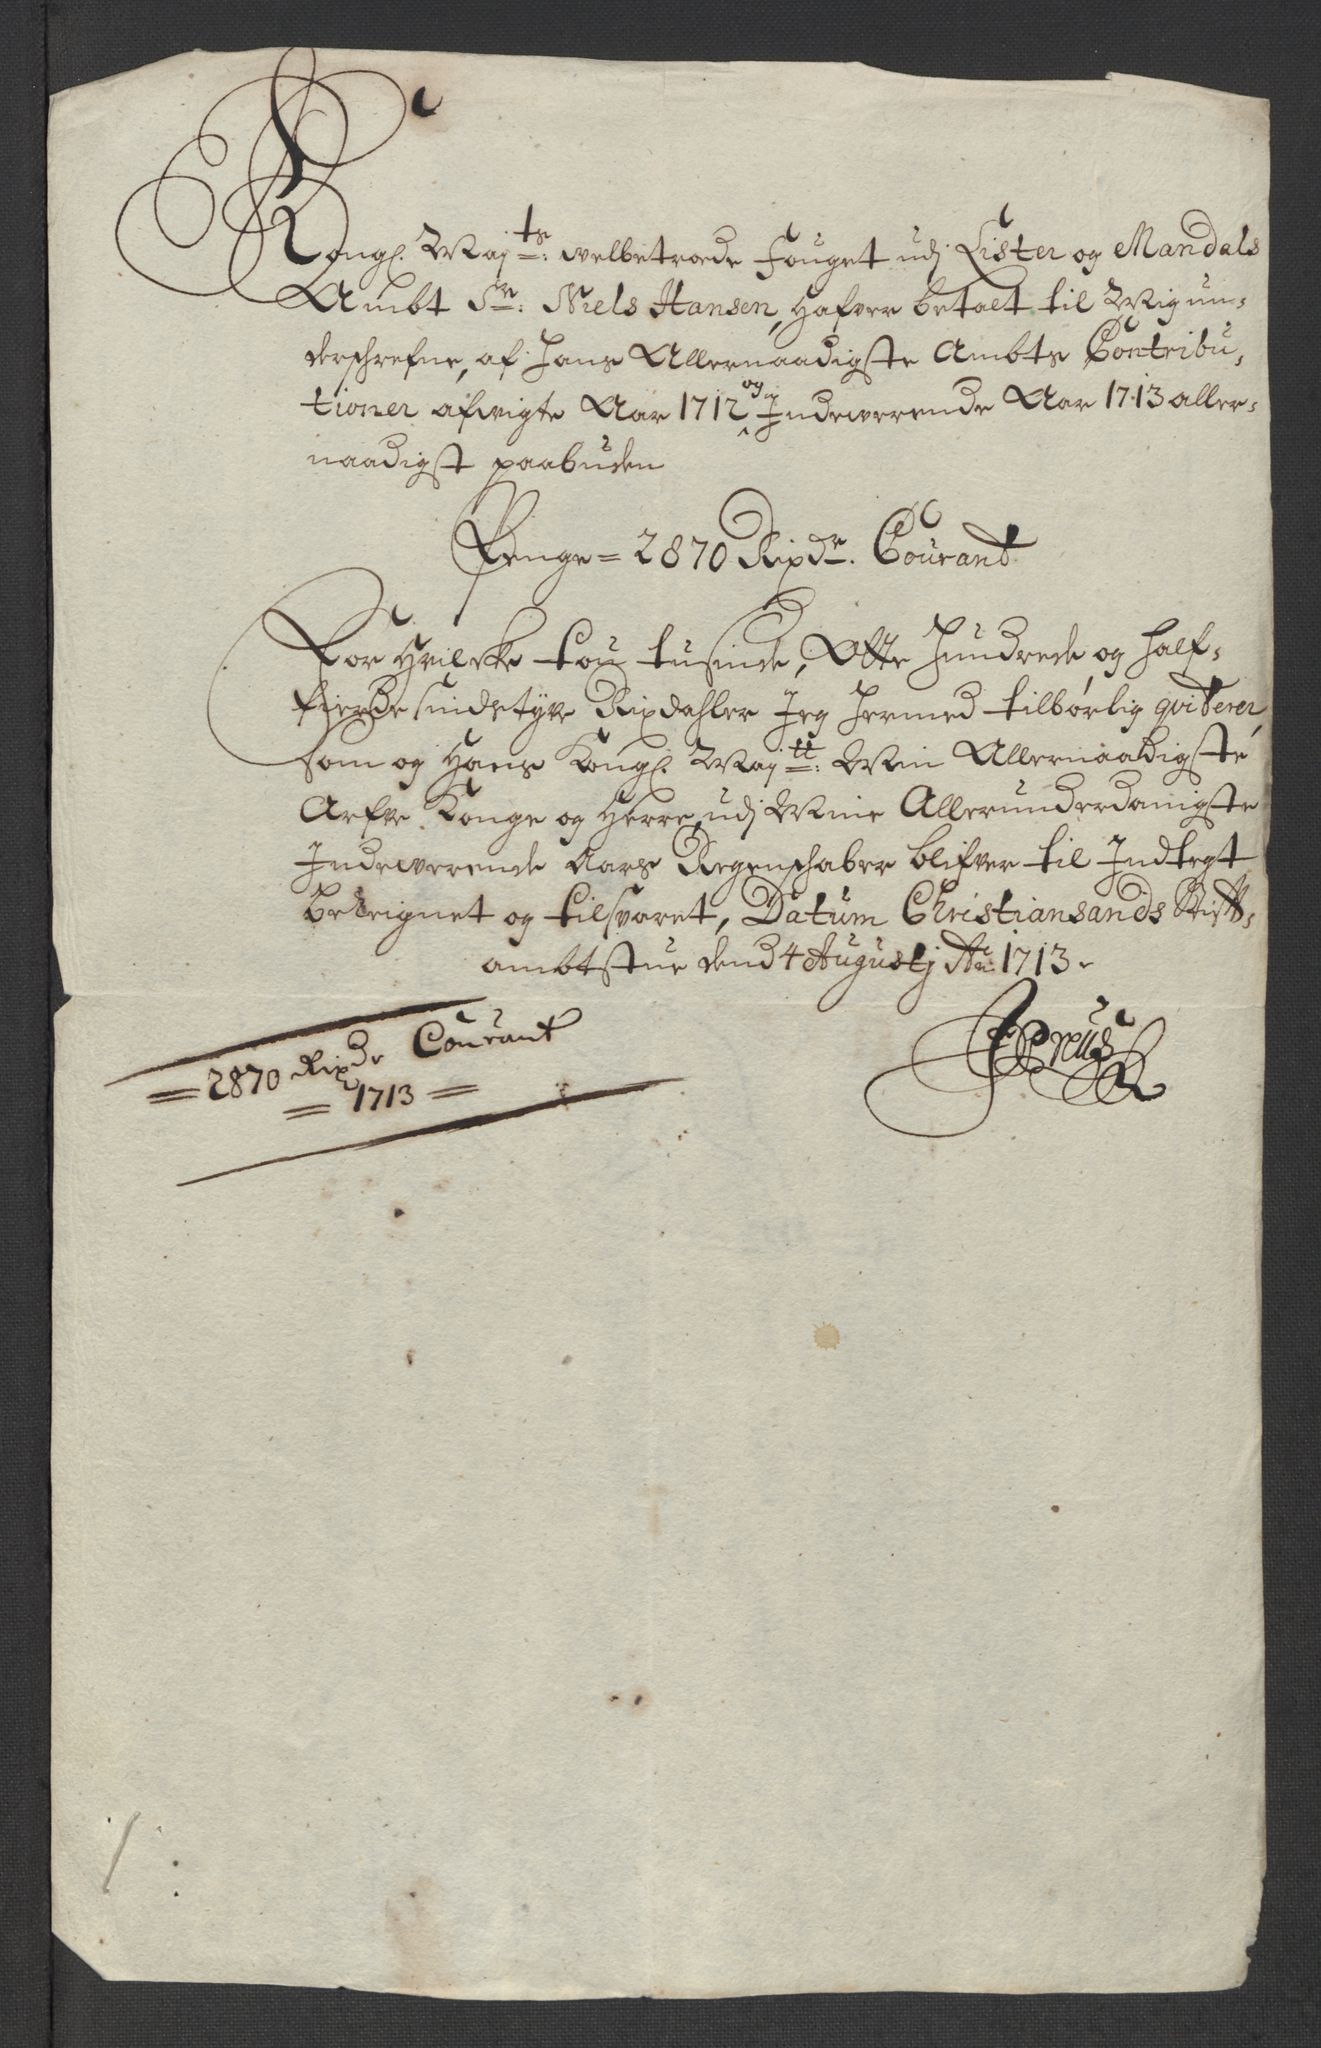 Kongl. Maj:ts velbetroede Fouget udj Lister og Mandals
Ambt Sr: Niels Hansen, hafver betalt til Mig un-
derschrefne, af Hans Allernaadigste Ambts Contribu-
tioner afvigte Aar 1712 og Indeverende Aar 1713 aller-
naadigst paabuden
Penge = 2870 Rixdr. Courant
For hvilcke tou tusinde, Otte Hundrede og half-
fierdesindstyve Rixdahler Jeg hermed tilbørlig qviterer,
som og Hans Kongl. Maj:tt: Min Allernaadigste
Arfve Konge og Herre, udj Mine Allerunderdanigste
Indeverende Aars Regenschaber blifver til Indtegt
bereignet og tilsvaret, Datum Christiansands Stift-
ambtstue dend 4 Augustj Ao: 1713.
Preus
2870 Rixdr Courant
1713